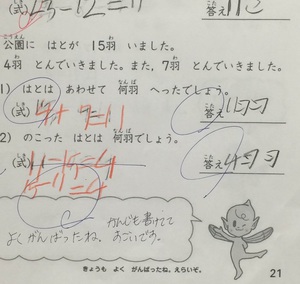 (式) 23-12=11
答え 11こ
公園に はとが 15羽 いました。
4羽 とんでいきました。また, 7羽 とんでいきました。
1) はとは あわせて 何羽 へったでしょう。
(式) 4+7=11
答え 11羽
2) のこった はとは 何羽でしょう。
(式) 11-15=4
答え 4羽
15-11=4
かんじも書けてて
よくがんばったね。すごいです。
きょうも よく がんばったね。えらいぞ。
21